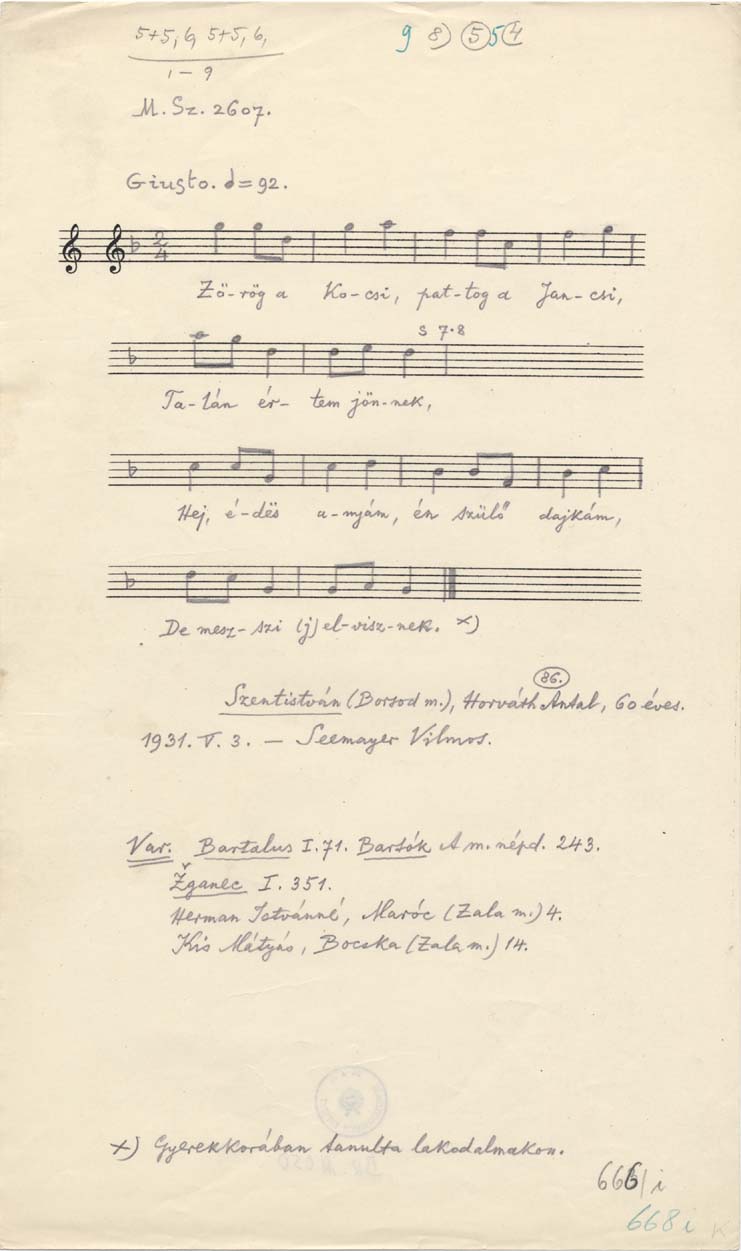 5+5, 6, 5+5, 6,
1 – 9
9 8) 5 5 4
M. Sz. 2607.
Giusto. d = 92.
2
4
Zö-rög a Ko-csi, pat-tog a Jan-csi,
S 7·8
Ta-lán ér-tem jön-nek,
Hej, é-dës a-nyám, én szülő dajkám,
De mesz-szi (j)el-visz-nek. x)
86.
Szentistván (Borsod m.), Horváth Antal, 60 éves.
1931. V. 3. — Seemayer Vilmos.
Var. Bartalus I. 71. Bartók A m. népd. 243.
Žganec I. 351.
Herman Istvánné, Maróc (Zala m.) 4.
Kis Mátyás, Bocska (Zala m.) 14.
x) Gyerekkorában tanulta lakodalmakon.
666/i
668 i